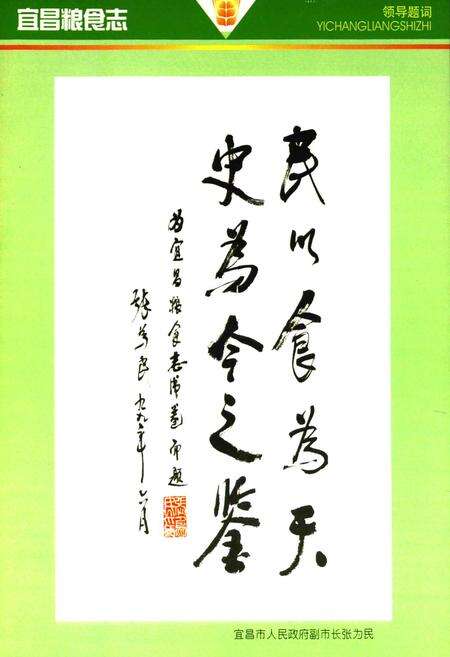 宜昌粮食志
领导题词
YICHANGLIANGSHIZHI
民以食為天
史為今之鉴
为宜昌粮食志成卷而题
张为民 九九二年六月
宜昌市人民政府副市长张为民